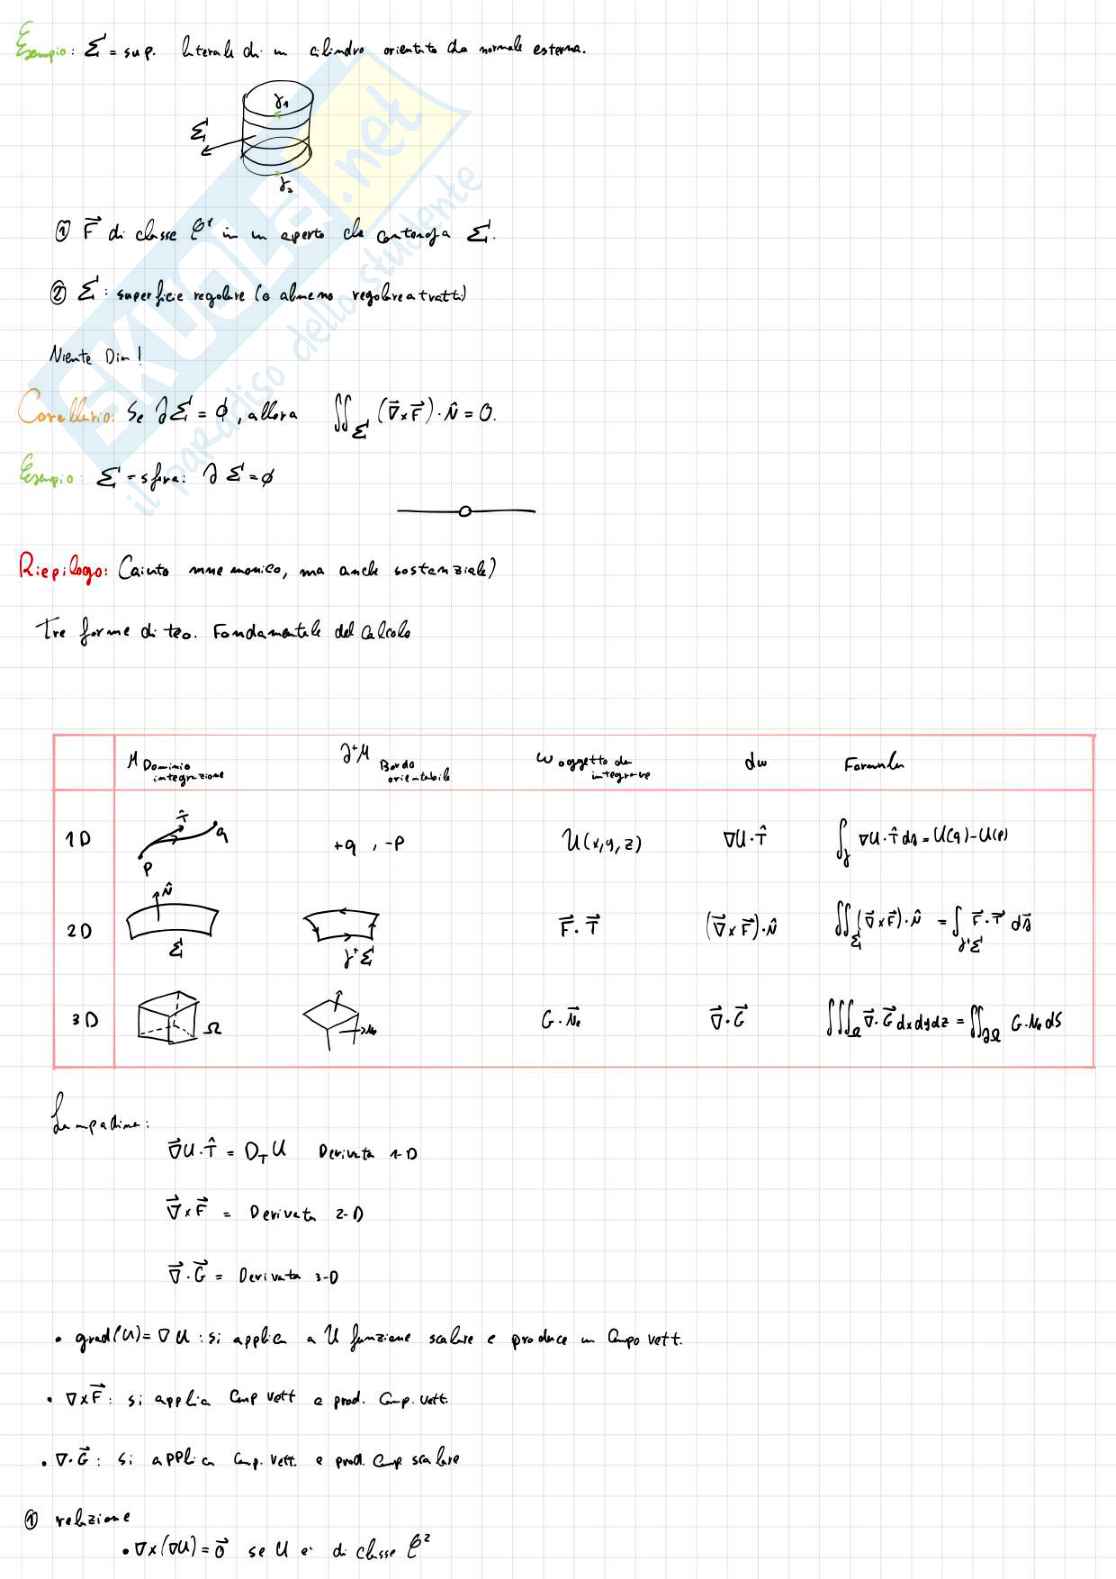 Esempio: Σ = sup. laterale di un cilindro orientato da normale esterna.
γ₁
Σ
γ₂
① F⃗ di classe C¹ in un aperto che contenga Σ.
② Σ: superficie regolare (o almeno regolare a tratti)
Niente Dim!
Corollario: Se ∂Σ = ∅, allora ∬_Σ (∇⃗×F⃗)·N̂ = 0.
Esempio: Σ = sfera: ∂Σ = ∅
Riepilogo: (aiuto mnemonico, ma anche sostanziale)
Tre forme di teo. Fondamentale del Calcolo
M Dominio integrazione ∂⁺M Bordo orientabile ω oggetto da integrare dω Formula
1D T̂ p q +q, -p U(x,y,z) ∇U·T̂ ∫_γ ∇U·T̂ ds = U(q)-U(p)
2D N̂ Σ ∂⁺Σ F⃗·T⃗ (∇⃗×F⃗)·N̂ ∬_Σ (∇⃗×F⃗)·N̂ = ∫_∂⁺Σ F⃗·T⃗ ds
3D Ω Ne G·N⃗e ∇⃗·G⃗ ∭_Ω ∇⃗·G⃗ dxdydz = ∬_∂Ω G·Ne dS
Lampadina:
∇⃗U·T̂ = D_T U Derivata 1-D
∇⃗×F⃗ = Derivata 2-D
∇⃗·G⃗ = Derivata 3-D
• grad(U) = ∇U: si applica a U funzione scalare e produce un Campo vett.
• ∇×F⃗: si applica Camp vett e prod. Camp. vett.
• ∇·G⃗: si applica Camp. vett. e prod. Camp scalare
① relazione
• ∇×(∇U) = 0⃗ se U è di classe C²
SKUOLA.net
il paradiso dello studente